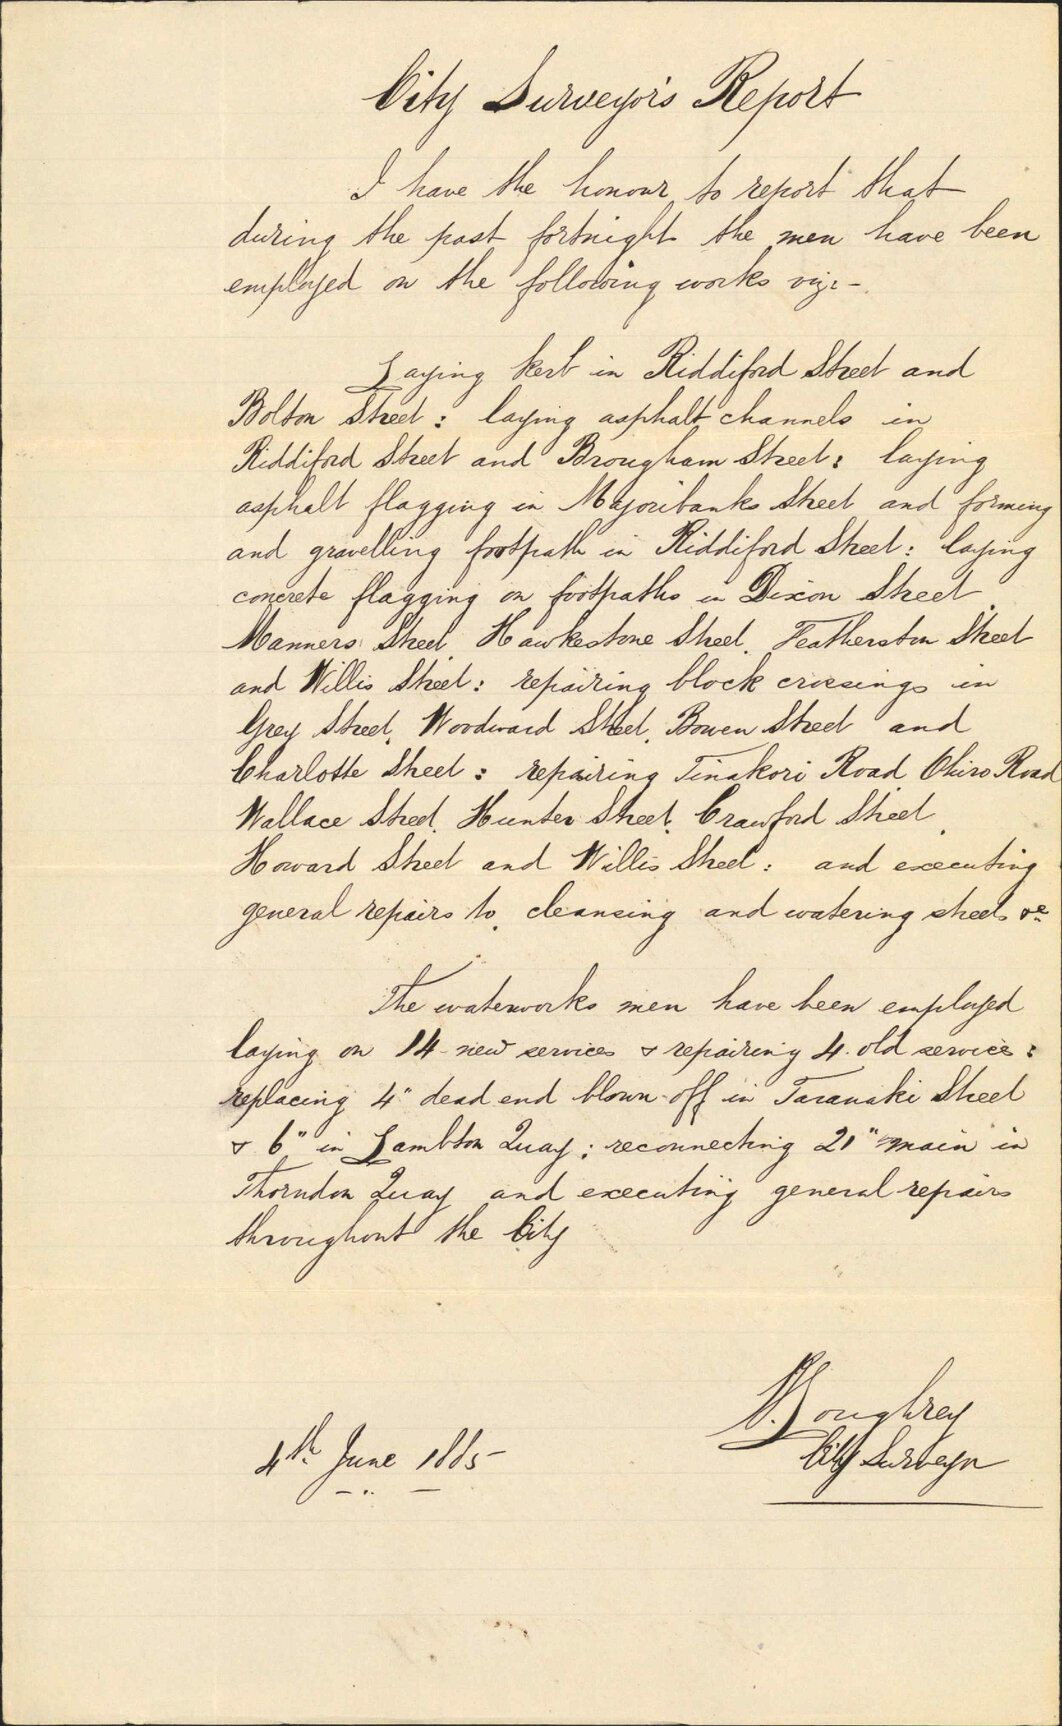 City Surveyor's Report
I have the honour to report that
during the past fortnight the men have been
employed on the following works viz:-
Laying kerb in Riddiford Street and
Bolton Street: laying asphalt channels in
Riddiford Street and Brougham Street: laying
asphalt flagging in Majoribanks Street and forming
and gravelling footpath in Riddiford Street: laying
concrete flagging on footpaths in Dixon Street,
Manners Street, Hawkestone Street, Featherston Street
and Willis Street: repairing block crossings in
Grey Street, Woodward Street, Bowen Street and
Charlotte Street: repairing Tinakori Road, Ohiro Road
Wallace Street, Hunter Street, Crawford Street,
Howard Street and Willis Street: and executing
general repairs to, cleansing and watering streets &c
The waterworks men have been employed
laying on 14 new services & repairing 4 old services:
replacing 4" dead end blown off in Taranaki Street
& 6" in Lambton Quay; reconnecting 21" main in
Thorndon Quay and executing general repairs
throughout the City
Loughrey
City Surveyor
4th June 1885